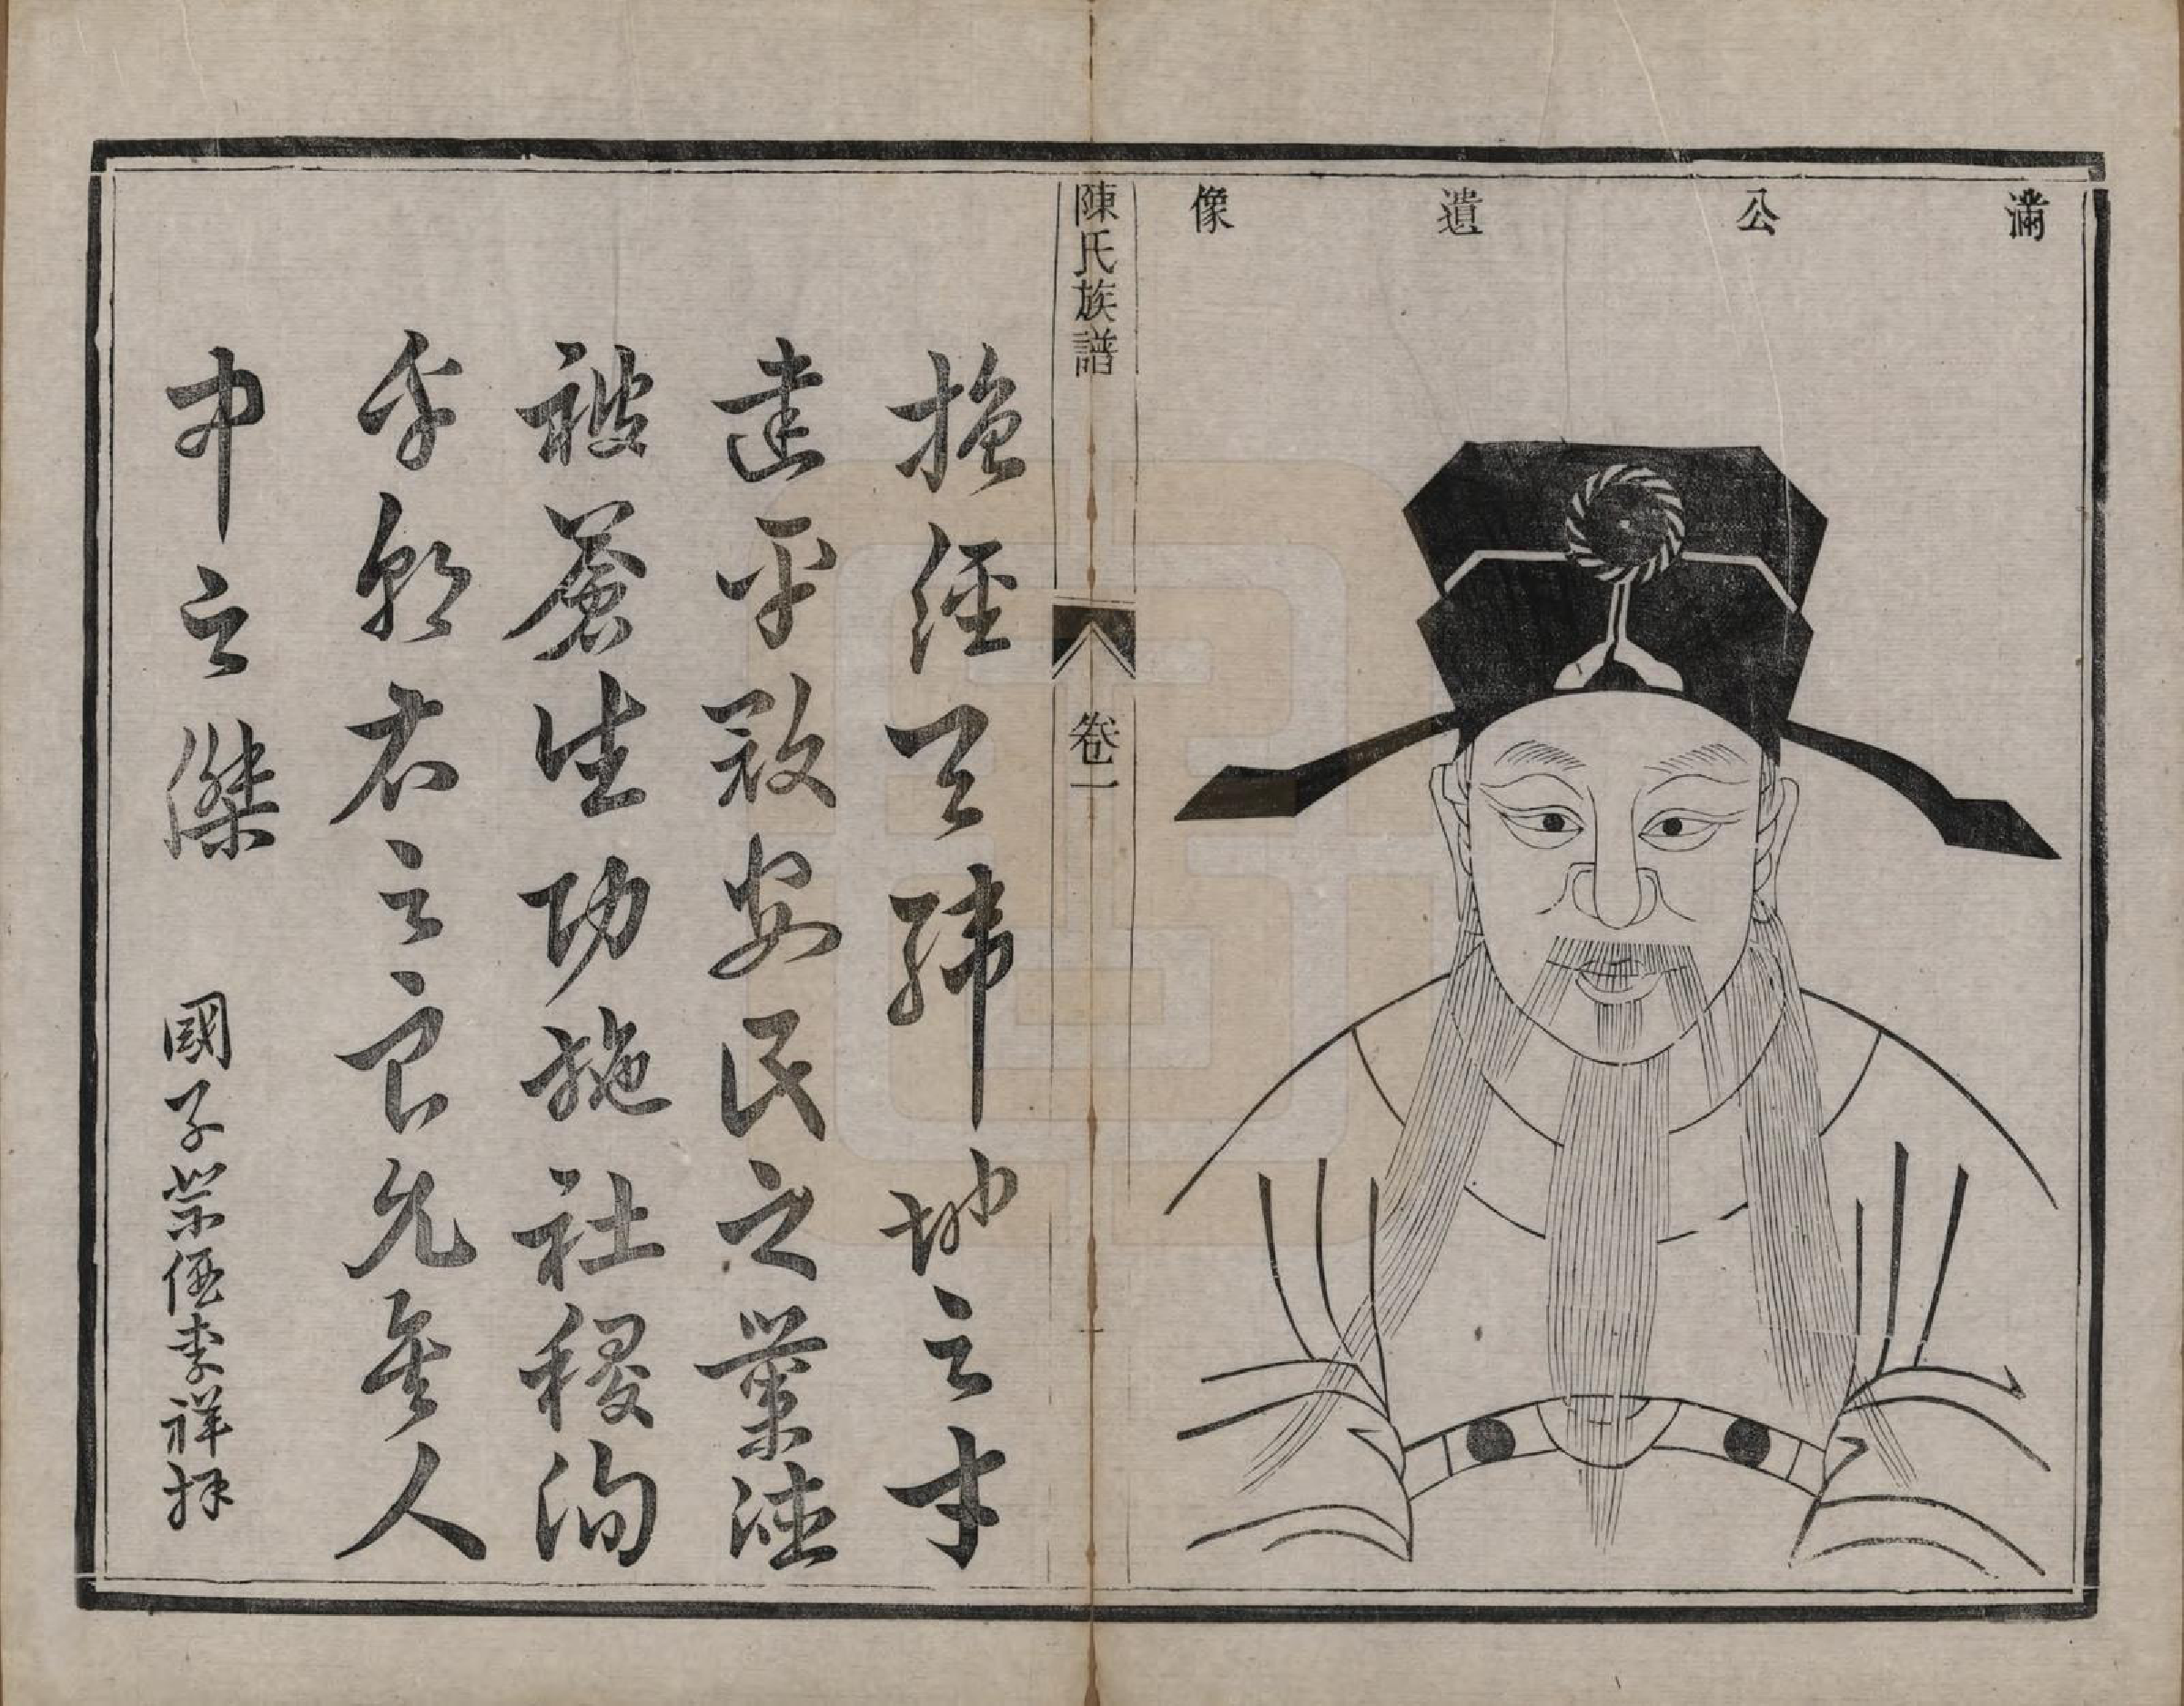 滿公遺像
陳氏族譜
卷一
抱經天緯地之才
建平敵安民之業澤
被蒼生功施社稷洵
乎朝右之良允矣人
中之傑
國子祭酒李祥拜